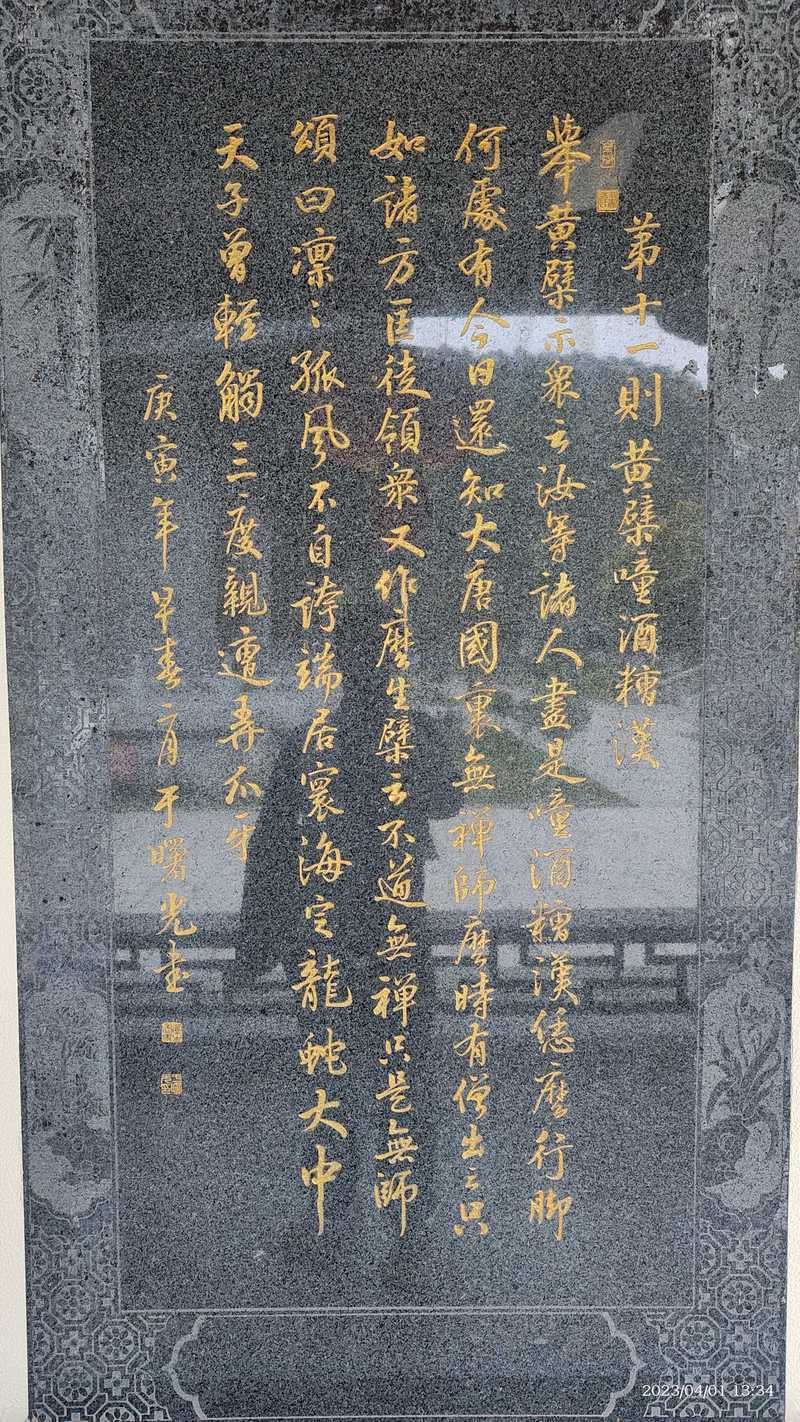 第十一則黄檗噇酒糟漢
舉黄檗示衆云汝等諸人盡是噇酒糟漢恁麽行脚
何處有今日還知大唐國裏無禪師麽時有僧出云只
如諸方匡徒領衆又作麽生檗云不道無禪只是無師
頌曰凛〻孤風不自誇端居寰海定龍蛇大中
天子曾輕觸三度親遭弄爪牙
庚寅年早春二月于曙光書
2023/04/01 13:34